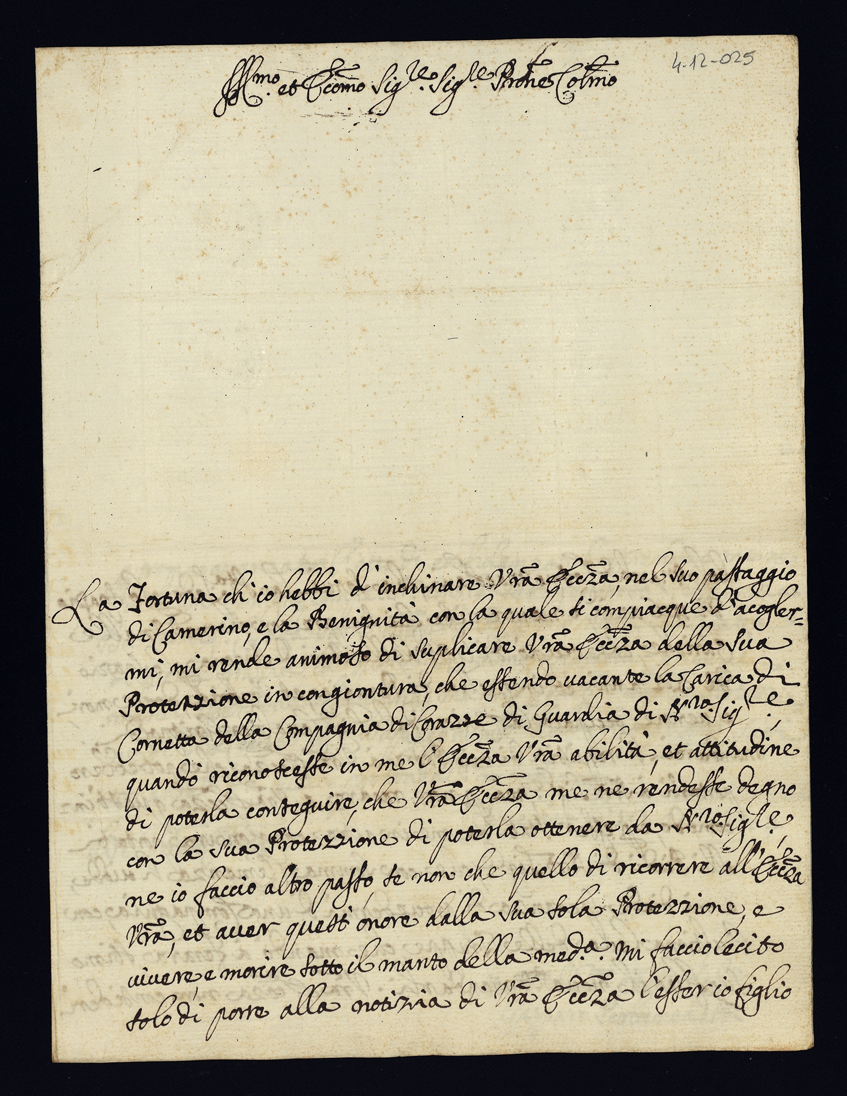 4-12-025
Ill.mo et Ecc.mo Sig.re Sig.re Pro͞ne Col͞mo
La Fortuna ch'io hebbi d'inchinare Vr͞a Ecc͞za, nel suo passaggio
di Camerino, e la Benignità con la quale si compiacque d'acoglier=
mi, mi rende animoso di suplicare Vr͞a Ecc͞za della sua
Protezzione in congiontura, che essendo vacante la Carica di
Cornetta della Compagnia di Corazze di Guardia di N.ro Sig.re,
quando riconoscesse in me l'Ecc͞za Vr͞a abilità, et attitudine
di poterla conseguire, che Vr͞a Ecc͞za me ne rendesse degno
con la sua Protezzione di poterla ottenere da N.ro Sig.re,
ne io faccio altro passo, se non che quello di ricorrere all'Ecc͞za
Vr͞a, et aver questi onore dalla sua sola Protezzione, e
vivere, e morire sotto il manto della med.a. Mi faccio lecito
solo di porre alla notizia di Vr͞a Ecc͞za l'esser io figlio